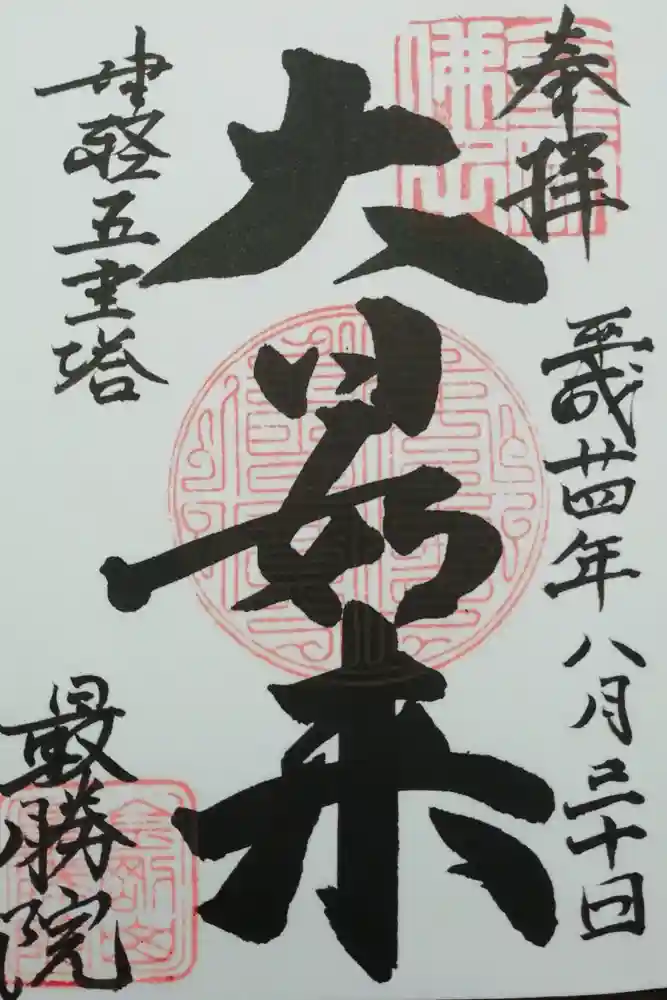 奉拝
平成廿四年八月三十日
大日如来
津軽五重塔
最勝院